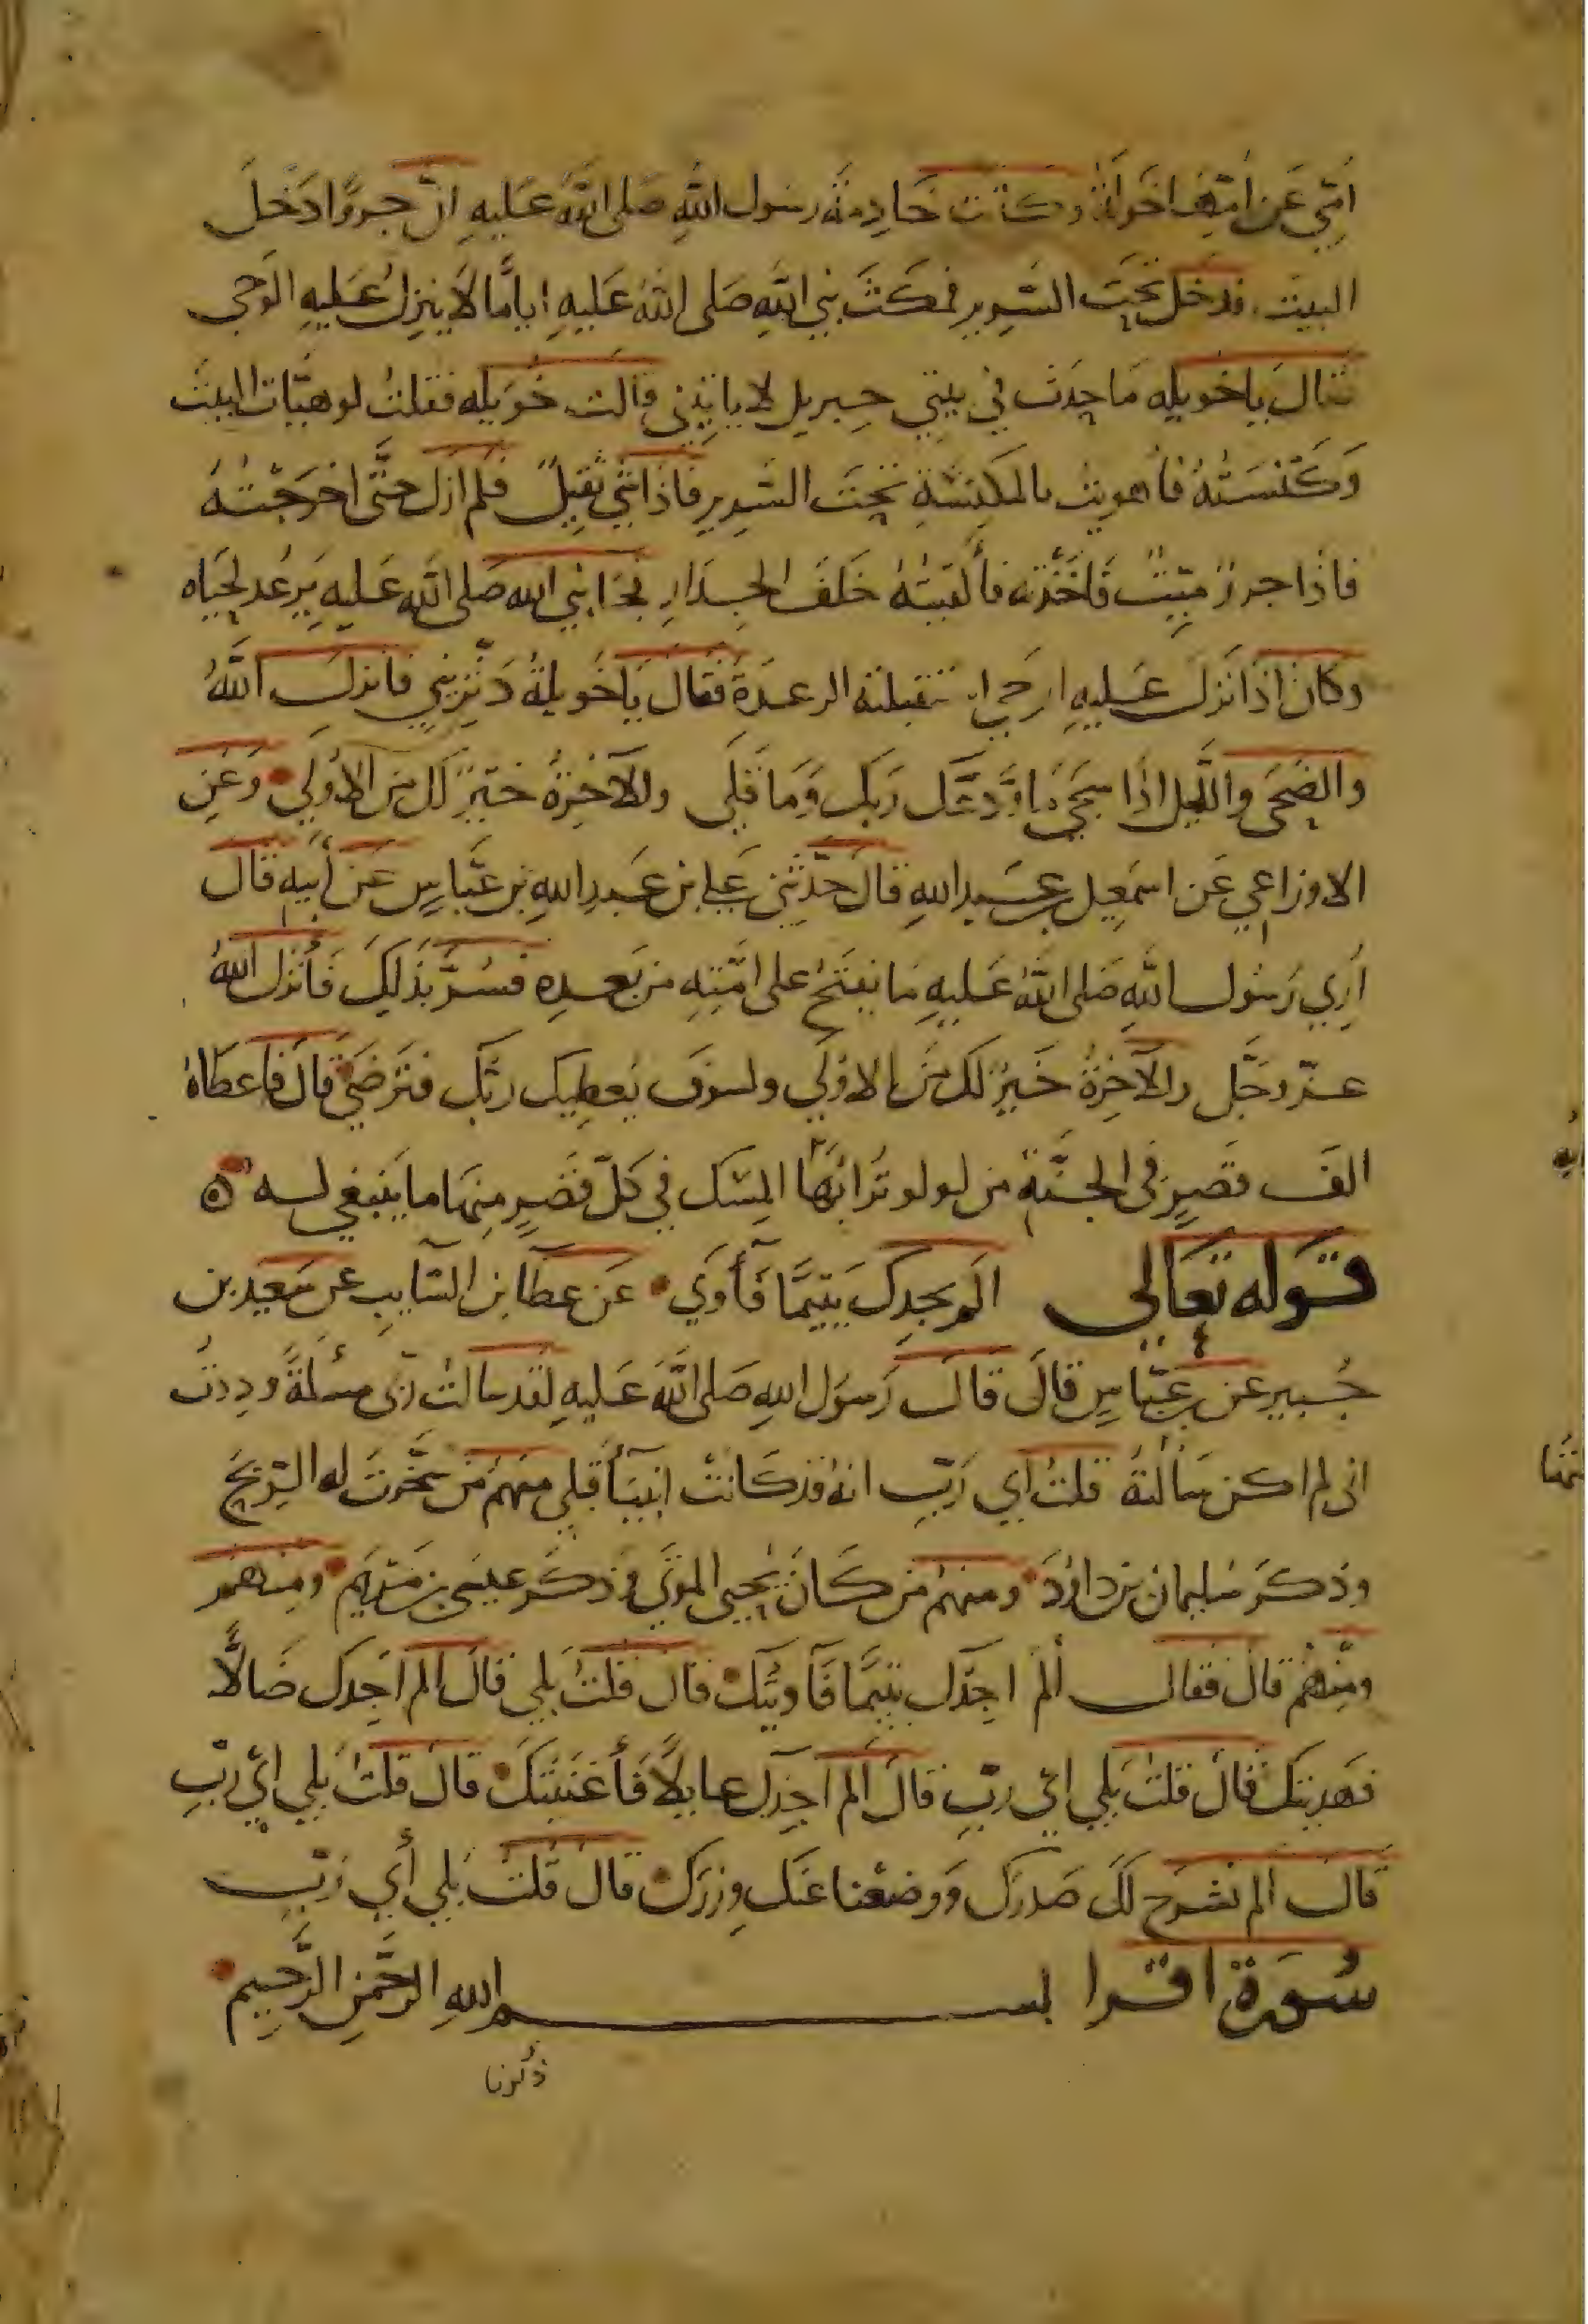 اُمّي عَن اُمِّهَا خَوله وكانت خَادِمَة رسول اللهِ صَلى اللهُ عَليهِ انّ جروًا دَخلَ
البيتَ فدخل تحتَ السَّرِيرِ فمكثَ نبي اللهِ صَلى اللهُ عَليهِ اياَّما لاَ ينزِلُ عَليهِ الوَحى
فقالَ يا خويله مَا حدَث في بيتي جبريل لا ياتِيني قالت خُوَيله فقلتُ لو هيّات البيتَ
وَكَنَستُهُ فأهويتُ بالمكنسَةِ تحتَ السَّرِيرِ فاذا شَيٌ ثقيلٌ فلم ازل حتَّى اخرَجتهُ
فاذا جروٌ ميّتٌ فأخَذته فألقيتُهُ خلفَ الجِدَارِ فجَا نبي الله صَلى الله عَليهِ يَرعُد لحيَاه
وكان اذا نَزلَ عَليهِ الوحى استقبلته الرعدَةُ فقال يَا خُويلةُ دَثّريني فانزلَ اللهُ
والضحَى واللَّيل اذَا سَجَى مَا ودَّعَكَ رَبكَ وَمَا قلَى وللآخِرَةُ خيرٌ لكَ منَ الاُولَى وَعَنِ
الاوزاعي عَن اسمَعِيل بن عبَيد اللهِ قالَ حدّثني عَلى بن عَبدِ اللهِ بن عبَّاسٍ عَن أبيهِ قال
اُرِي رَسُول اللهِ صَلى اللهُ عَليهِ مَا يفتَحُ على امَّتِهِ من بَعدِهِ فسُرَّ بذَلِكَ فأنزل اللهُ
عزّ وجَّل وللآخِرَةُ خَيرٌ لكَ منَ الاوُلَى ولسَوفَ يُعطِيك ربُّك فتَرضَى قالَ فاعطاهُ
الفَ قصرٍ في الجَنَّةِ من لولو تُرابُهَا المِسك في كلّ قصرٍ مِنهَا ما يَنبغي له
قَوله تعَالى اَلم يجدكَ يَتيمًا فَأوَى عَن عطَا بن السَّايبِ عن سَعيد بن
جُبيرٍ عن ابن عبَّاسٍ قالَ قالَ رَسوَل اللهِ صَلى اللهُ عَليهِ لقد سالتُ ربّى مسئلةً وددتُ
انى لم اكن سَألتهُ قلتُ اي رَبّ انهُ قد كَانتْ انبيَا قبلي منهم مَن سخّرتَ له الرّيحَ
وذكرَ سُليمان بن داوُدَ ومنهم من كَانَ يحيى الموتَى وذكَر عيسَى بن مَريَم ومنهم
ومنهم قالَ فقال ألم اجِدكَ يتيمًا فآويتُك قال قلتُ بَلي قالَ الم اجِدكَ ضالًّا
فهَديتكَ قالَ قلتُ بَلي اي ربِّ قالَ الم اجِدكَ عايلاً فَأغنَيتكَ قال قلتُ بَلي اي ربِّ
قالَ الم نشرح لكَ صَدركَ وَوضعْنا عَنكَ وِزركَ قالَ قُلتُ بَلي أي رَبِّ
سُورَة اقرا بسم اللهِ الرَّحمَنِ الرَّحِيم